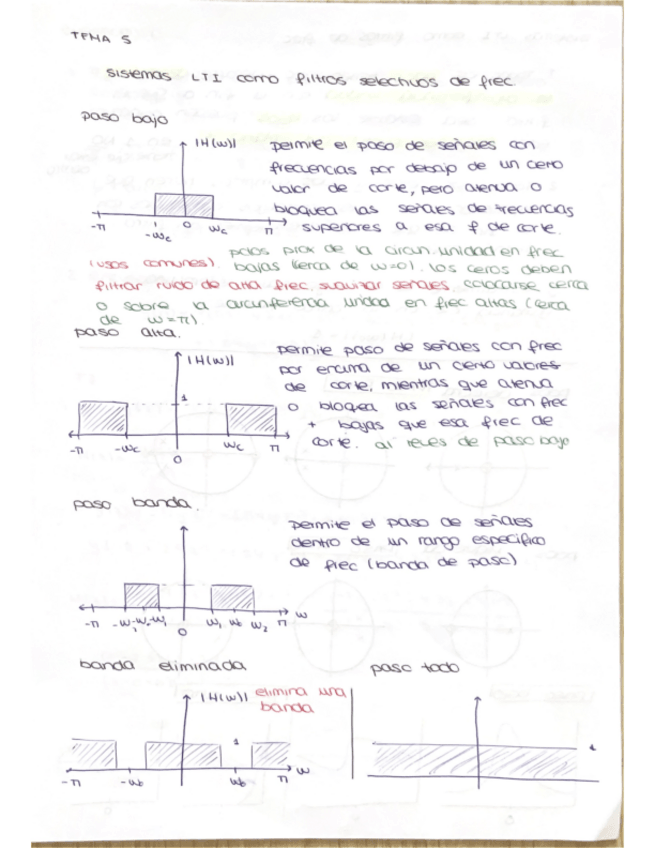 TEMA 5
sistemas LTI como filtros selectivos de frec
paso bajo
|H(w)|
permite el paso de señales con
frecuencias por debajo de un cierto
valor de corte, pero atenua o
bloquea las señales de frecuencias
superiores a esa f de corte.
-π -wc 0 wc π
polos prox de la circun. unidad en frec
(usos comunes). bajas (cerca de w=0). los ceros deben
filtrar ruido de alta frec, suavizar señales. colocarse cerca
o sobre la circunferencia unidad en frec altas (cerca
de w=π).
paso alta.
|H(w)|
permite paso de señales con frec
por encima de un cierto valores
de corte, mientras que atenua
o bloquea las señales con frec
+ bajas que esa frec de
corte. al reves de paso bajo
1
-π -wc 0 wc π
paso banda.
permite el paso de señales
dentro de un rango especifico
de frec (banda de paso)
-π 0 w1 w2 π w
banda eliminada
paso todo
|H(w)| elimina una
banda
1
1
-π -wb wb π w